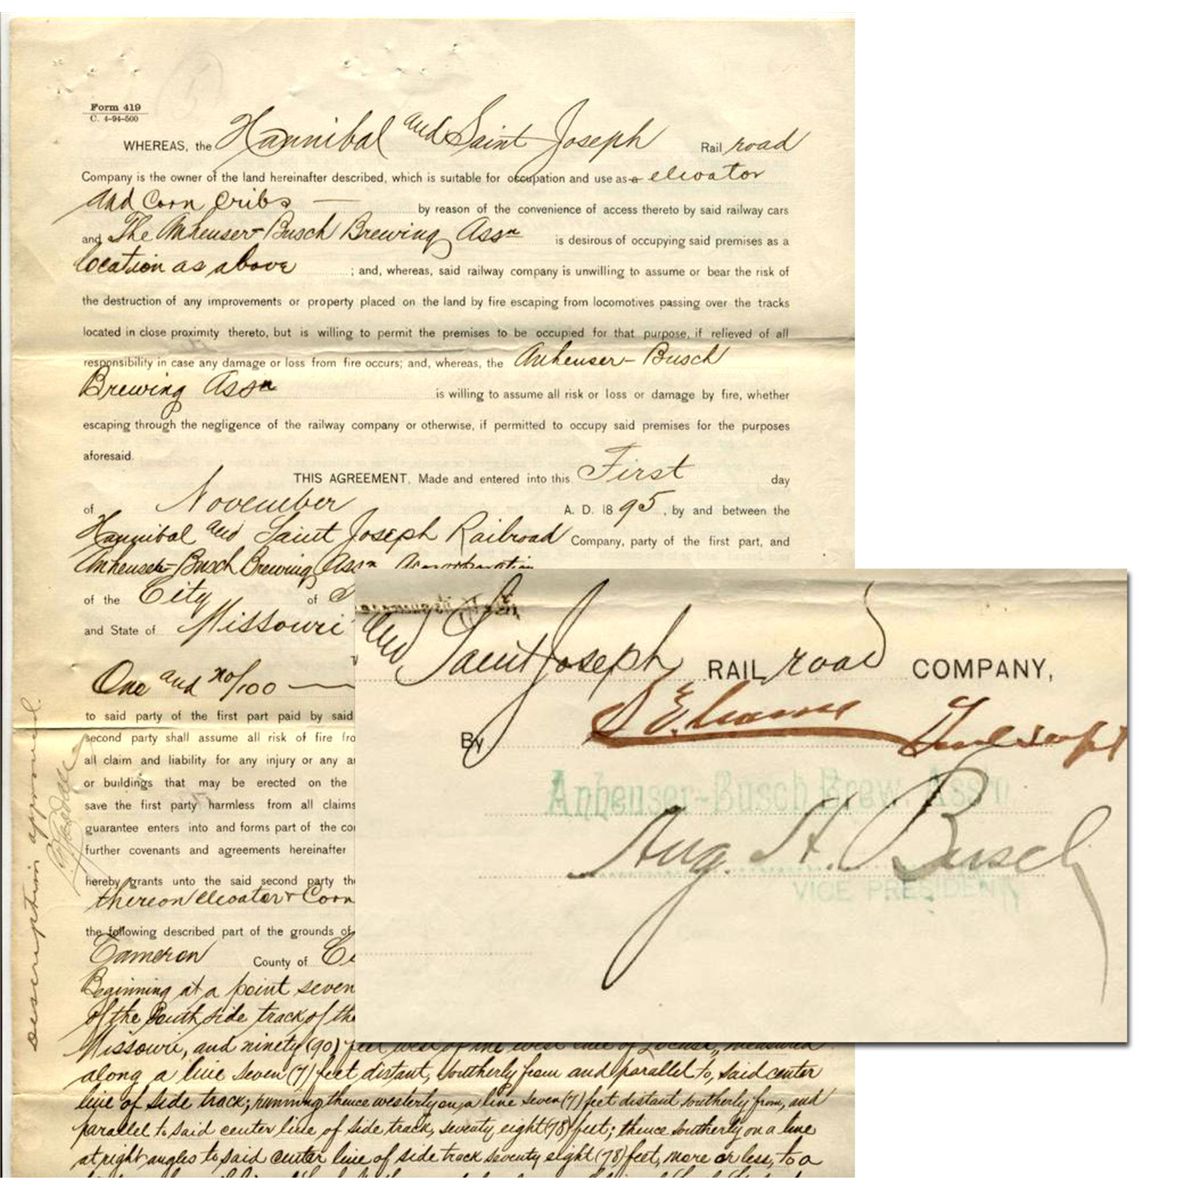 Form 419
C. 4-94-500
WHEREAS, the Hannibal and Saint Joseph Rail road
Company is the owner of the land hereinafter described, which is suitable for occupation and use as a elevator
and Corn Cribs — by reason of the convenience of access thereto by said railway cars
and The Anheuser-Busch Brewing Assn is desirous of occupying said premises as a
location as above ; and, whereas, said railway company is unwilling to assume or bear the risk of
the destruction of any improvements or property placed on the land by fire escaping from locomotives passing over the tracks
located in close proximity thereto, but is willing to permit the premises to be occupied for that purpose, if relieved of all
responsibility in case any damage or loss from fire occurs; and, whereas, the Anheuser-Busch
Brewing Assn is willing to assume all risk or loss or damage by fire, whether
escaping through the negligence of the railway company or otherwise, if permitted to occupy said premises for the purposes
aforesaid.
THIS AGREEMENT, Made and entered into this First day
of November A. D. 1895, by and between the
Hannibal and Saint Joseph Railroad Company, party of the first part, and
Anheuser-Busch Brewing Assn A corporation
of the City of
and State of Missouri
One and no/100 —
to said party of the first part paid by said
second party shall assume all risk of fire fro
all claim and liability for any injury or any a
or buildings that may be erected on the
save the first party harmless from all claims
guarantee enters into and forms part of the co
further covenants and agreements hereinafter
hereby grants unto the said second party the
thereon elevator & Corn
the following described part of the grounds of
Cameron County of
Beginning at a point seven
of the South side track of the
Missouri, and ninety (90) feet west of the west line of Locust, measured
along a line seven (7) feet distant, Southerly from and parallel to, said center
line of side track; running thence westerly on a line seven (7) feet distant Southerly from, and
parallel to said center line of side track, seventy eight (78) feet; thence Southerly on a line
at right angles to said center line of side track seventy eight (78) feet, more or less, to a
description approved
and Saint Joseph RAIL road COMPANY,
By
Anheuser-Busch Brew. Assn
Aug. A. Busch
VICE PRESIDENT